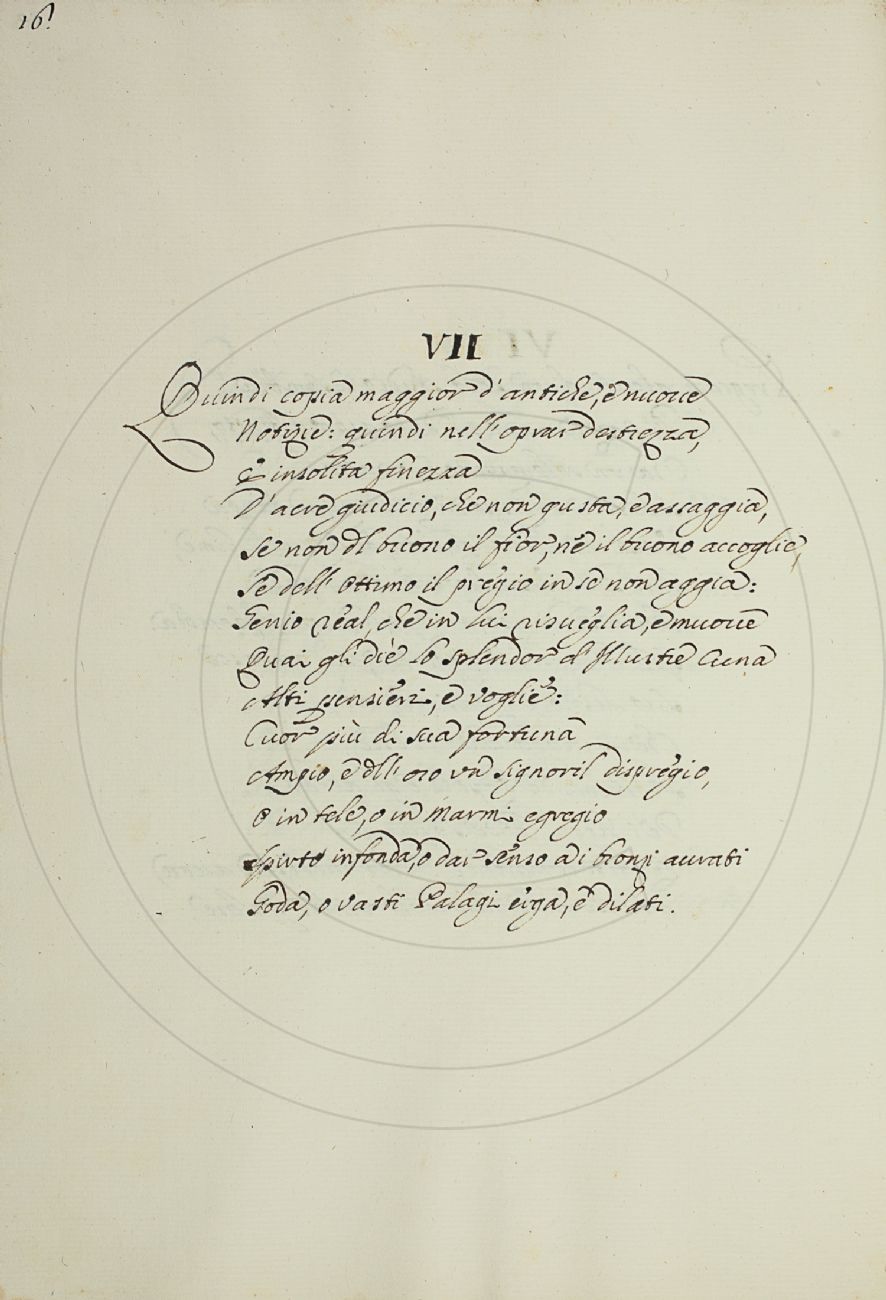 16!
VII
Quindi copia maggior d'antiche, e nuove
Notizie: quindi nell'oprar destrezza,
E insolita finezza
D'acre giudicio, che non gusta, e assaggia,
Se non dl buono il fior, nè il buono accoglie,
Se dell'ottimo il pregio in se non aggia:
Genio real, che in lui risueglia, e muove
Quai gli diè lo splendor d'Illustre Cuna
Alti pensieri, e voglie:
Cuor più di sua fortuna
Ampio, e dll'oro un signoril dispregio,
O in tele, o in Marmi egregio
Spirto infonda, o dar senso a i bronzi aurati
Goda, o vasti Palagi erga, e dilati.